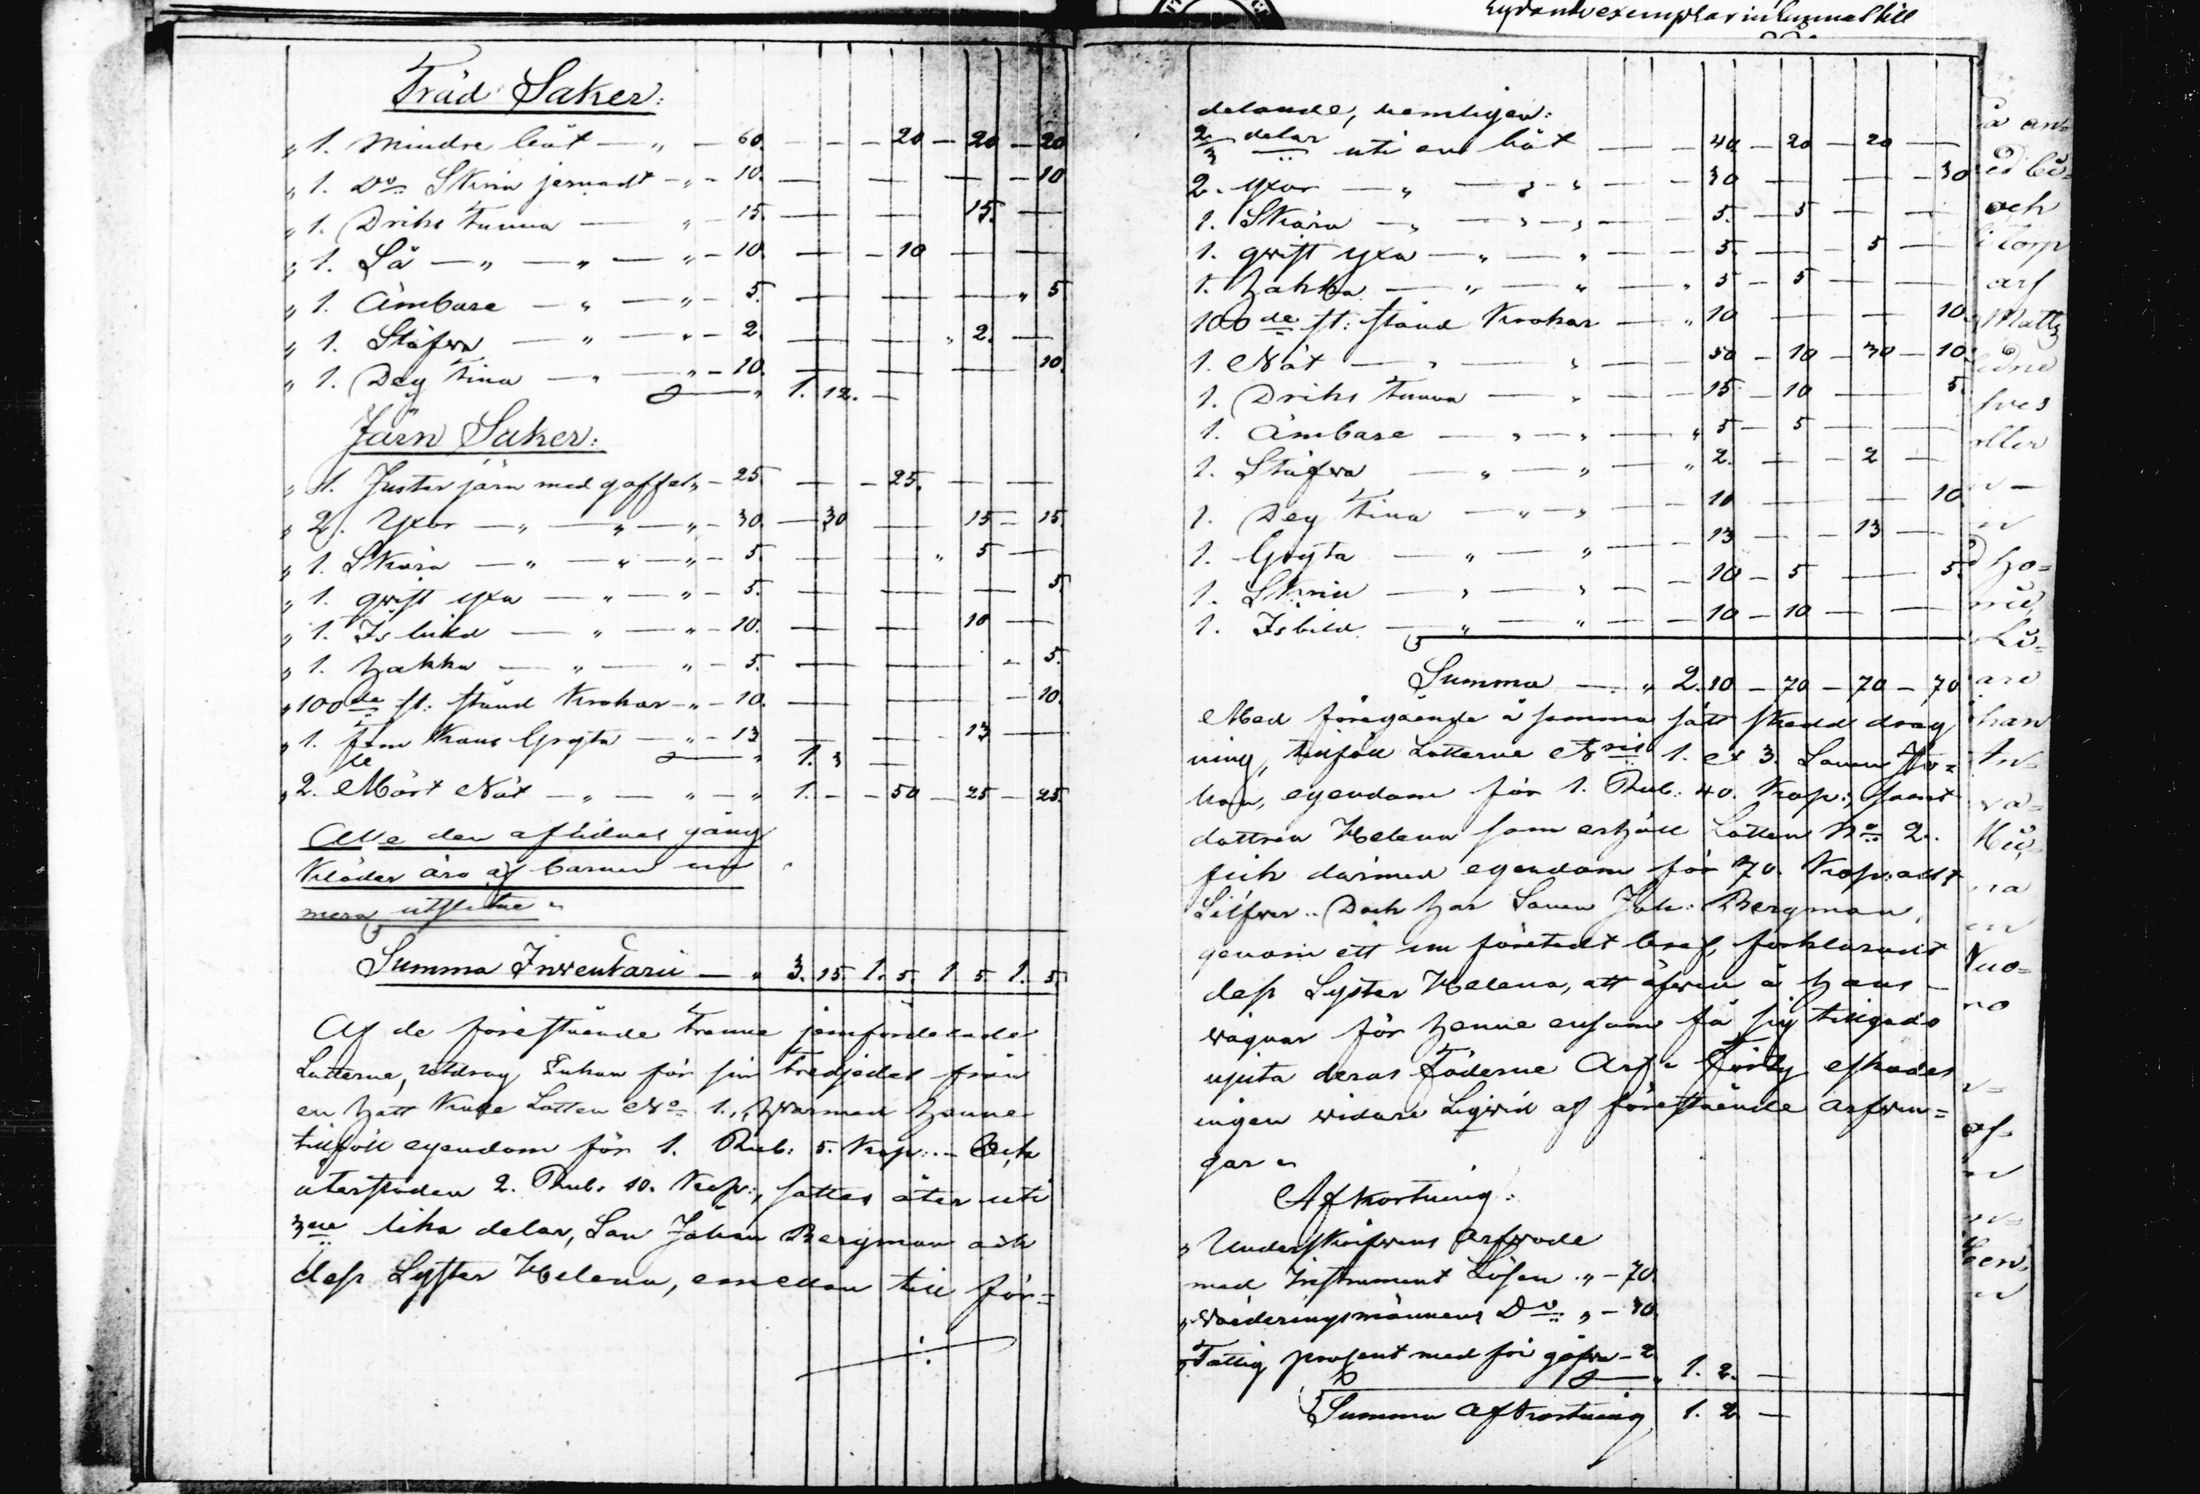 Lydande exemplar inlemnat till
Träd Saker:
„ 1. mindre båt — „ — 60. — — 20 — 20 — 20
„ 1. Do Skrin jernadt — „ — 10. — — — 10
„ 1. Dricks tunna — „ — 15. — — 15. —
„ 1. Så — „ — „ — „ — 10. — 10 — —
„ 1. Ämbare — „ — „ — 5. — — — „ 5
„ 1. Stäfwa — „ — „ — 2. — — „ 2. —
„ 1. Deg tina — „ — „ — 10. — — — 10.
„ 1. 12. —
Järn Saker:
„ 1. Juster järn med gaffel „ — 25. — — 25. — —
„ 2. Yxor — „ — „ — „ — 30. — 30 — 15 — 15.
„ 1. Skära — „ — „ — „ — 5. — — „ 5 —
„ 1. qwist yxa — „ — „ — 5. — — — 5.
„ 1. Is bild — „ — „ — 10. — — 10 —
„ 1. hakka — „ — „ — 5. — — — 5.
„ 100de st: stånd krokar — „ — 10. — — — 10.
„ 1. fem kans Gryta — „ — 13 — — 13 —
„ 1. 3 —
„ 2. Mört Nät — „ — „ — „ 1. — — 50 — 25 — 25.
Alle den aflidnes gång
kläder äro af barnen nu
mera utslitne „
Summa Inventarii — „ 3. 15. 1. 5. 1 5. 1. 5.
Af de föreståënde trenne jemfördelade
Lotterne, utdrog Enkan för sin tredjedel från
en hatt Kulle Lotten No 1., hwarmed henne
tillföll egendom för 1. Rub: 5. Kop: — Och
återstoden 2. Rub. 10. Kop:, sattes åter uti
3ne lika delar, Son Johan Bergman och
dess Syster Helena, emellan till för=
delande, nemligen:
2/3 delar uti en båt — — 40. — 20 — 20 —
2. yxor — „ — „ — „ — — 30 — — — 30
1. Skära — „ — „ — „ — — 5. — 5 — —
1. qwist yxa — „ — „ — — 5. — — 5 —
1. hakka — „ — „ — „ 5 — 5 — —
100de st: stånd krokar — „ 10 — — 10.
1. Nät — „ — „ — — 50 — 10 — 30 — 10
1. Dricks tunna — „ — 15. — 10 — 5.
1. Ämbare — „ — „ — „ 5 — 5 — —
1. Stäfwa — „ — „ — „ 2. — — 2 —
1. Deg tina — „ — „ — 10 — — 10.
1. Gryta — „ — „ — — 13 — — 13 —
1. Skrin — „ — „ — — 10 — 5 — 5.
1. Isbild — „ — „ — — 10 — 10 — —
Summa — „ 2. 10 — 70 — 70 — 70
Med föregående å samma sätt skedd drag
ning, tillföll Lotterne Nris 1. et 3. Sonen Jo=
han, egendom för 1. Rub: 40. Kop:, samt
dottren Helena som erhöll Lotten No 2.
fick därmed egendom för 70. Kop: allt
Silfwer. „ Doch har Sonen Joh: Bergman,
genom ett nu företedt bref, förklaradt
dess Syster Helena, att äfwen å hans
wägnar för henne ensam få sig tillegado
njuta deras Fäderne Arf. Ty eskades
ingen widare Liqvid af föreståënde arfwin=
gar „
Afkortning:
„ Underskrifwens Arfwode
med Instrument Lösen „ — 70.
„ Wärderingsmännens Do „ — 30.
„ Fattig prosent med fri gåfwa — 2.
„ 1. 2. —
Summa Afkortning 1. 2 —
och
Torp
arf
Matts